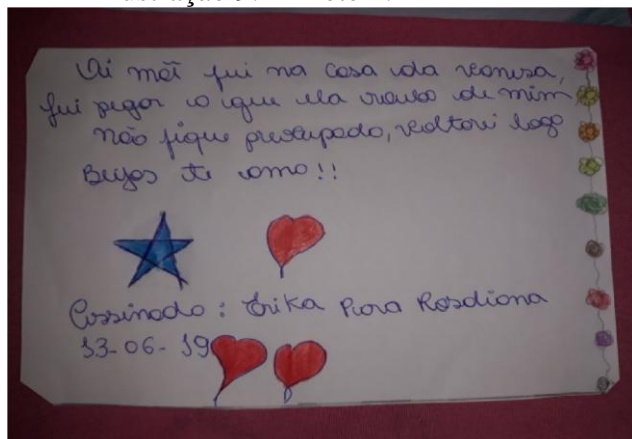 Oi mãe fui na casa da vanusa,
fui pegar o que ela roubo de mim
não fique preocupado, voltarei logo
Beijos te amo!!
Assinado: Erika Para Rosdiana
13-06-19